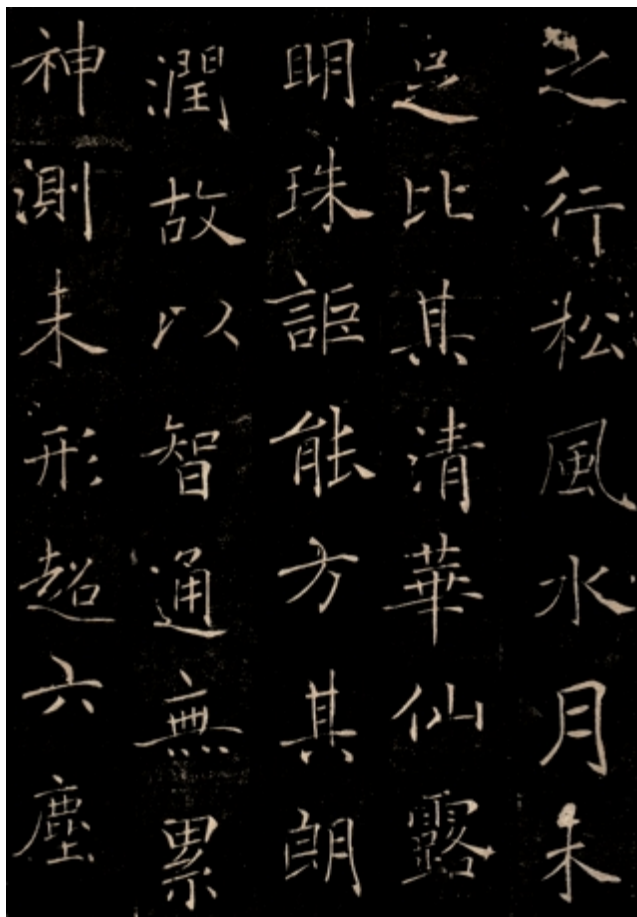 之行松風水月未
足比其清華仙露
明珠詎能方其朗
潤故以智通無累
神測未形超六塵